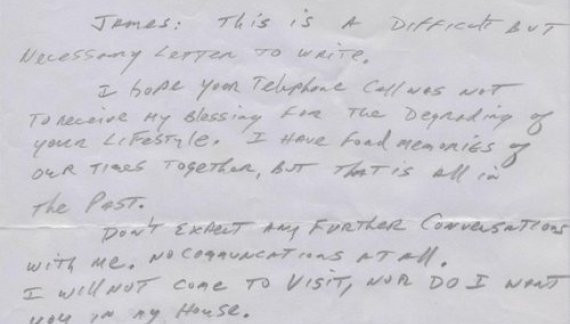 James: This is a Difficult But
Necessary Letter to write.
I hope your Telephone Call was not
To receive my Blessing for the Degrading of
your Lifestyle. I have fond memories of
our times together, But that is all in
the Past.
Don't Expect Any Further Conversations
with me. No Communcations at all.
I will not come to Visit, nor do I want
you in my House.